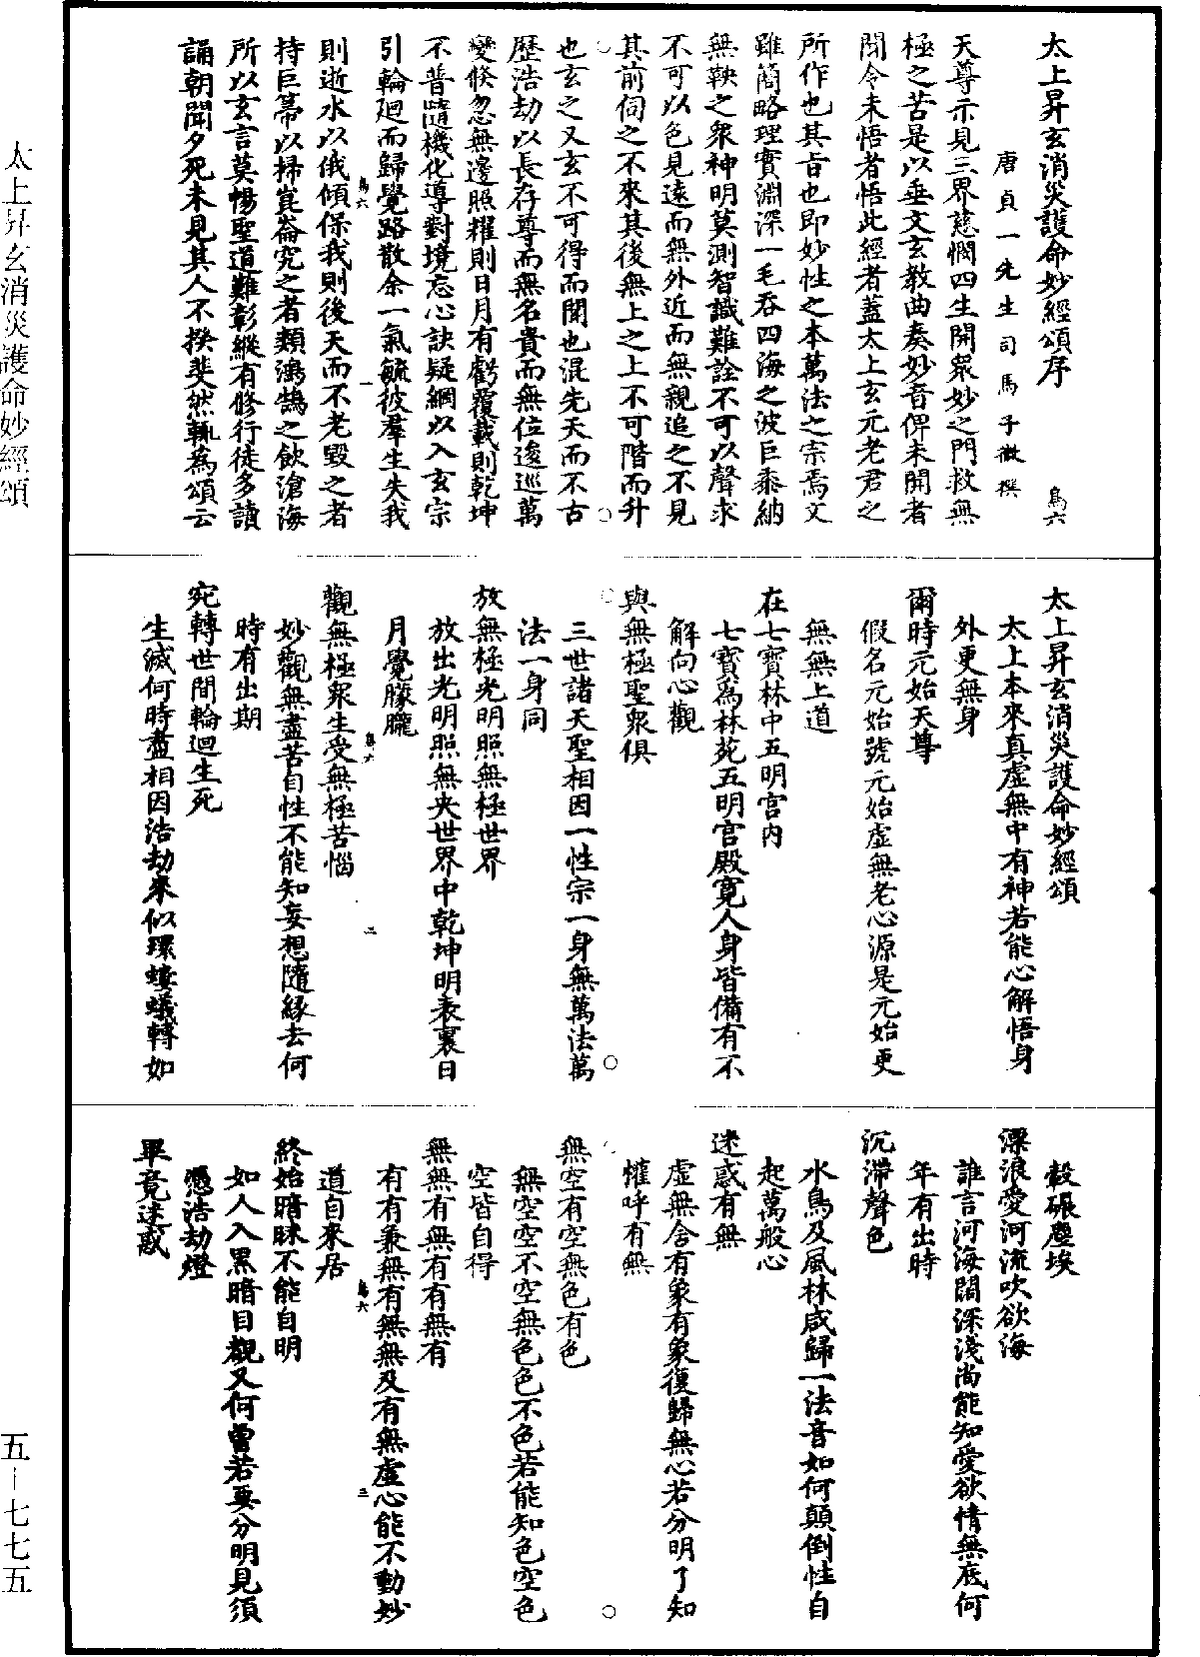 太上昇玄消災護命妙經頌序
鳥六
唐貞一先生司馬子微撰
天尊示見三界慈憫四生開眾妙之門救無
極之苦是以垂文玄教曲奏妙音俾未開者
開令未悟者悟此經者蓋太上玄元老君之
所作也其旨也即妙性之本萬法之宗焉文
雖簡略理實淵深一毛吞四海之波巨黍納
無鞅之眾神明莫測智識難詮不可以聲求
不可以色見遠而無外近而無親追之不見
其前伺之不來其後無上之上不可階而升
也玄之又玄不可得而聞也混先天而不古
歷浩劫以長存尊而無名貴而無位逡巡萬
變倏忽無邊照耀則日月有虧覆載則乾坤
不普隨機化導對境忘心訣疑網以入玄宗
引輪迴而歸覺路散余一氣毓彼羣生失我
鳥六 一
則逝水以俄傾保我則後天而不老毀之者
持巨箒以掃崑崙究之者類鴻鵠之飲滄海
所以玄言莫暢聖道難彰縱有修行徒多讀
誦朝聞夕死未見其人不揆斐然輒為頌云
太上昇玄消災護命妙經頌
太上本來真虛無中有神若能心解悟身
外更無身
爾時元始天尊
假名元始號元始虛無老心源是元始更
無無上道
在七寶林中五明宮內
七寶為林苑五明宮殿寬人身皆備有不
解向心觀
與無極聖眾俱
三世諸天聖相因一性宗一身無萬法萬
法一身同
放無極光明照無極世界
放出光明照無央世界中乾坤明表裏日
月覺朦朧
鳥六 二
觀無極眾生受無極苦惱
妙觀無盡苦自性不能知妄想隨緣去何
時有出期
宛轉世間輪迴生死
生滅何時盡相因浩劫來似環螻蟻轉如
轂碾塵埃
漂浪愛河流吹欲海
誰言河海闊深淺尚能知愛欲情無底何
年有出時
沉滯聲色
水鳥及風林咸歸一法音如何顛倒性自
起萬般心
迷惑有無
虛無含有象有象復歸無心若分明了知
懽呼有無
無空有空無色有色
無空空不空無色色不色若能知色空色
空皆自得
無無有無有有無有
有有兼無有無無及有無虛心能不動妙
道自來居
鳥六 三
終始暗昧不能自明
如人入黑暗目覩又何曾若要分明見須
憑浩劫燈
畢竟迷惑
太上昇玄消災護命妙經頌
五－七七五